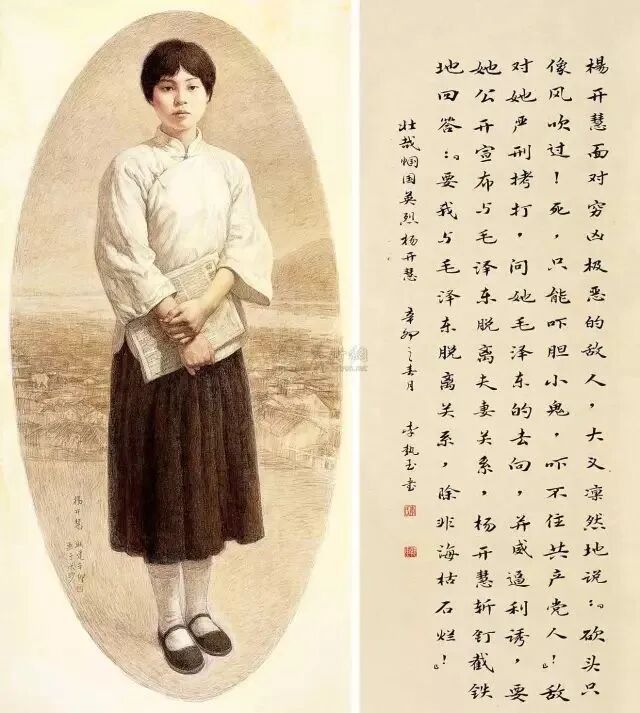 楊开慧面对穷凶极恶的敌人，大义凛然地说："砍头只
像风吹过！死，只能吓胆小鬼，吓不住共产党人！"敌
对她严刑拷打，问她毛泽东的去向，并威逼利诱，要
她公开宣布与毛泽东脱离夫妻关系，杨开慧斩钉截铁
地回答："要我与毛泽东脱离关系，除非海枯石烂！"
壮哉 国英烈杨开慧 辛卯之春月 李 玉书
楊开慧